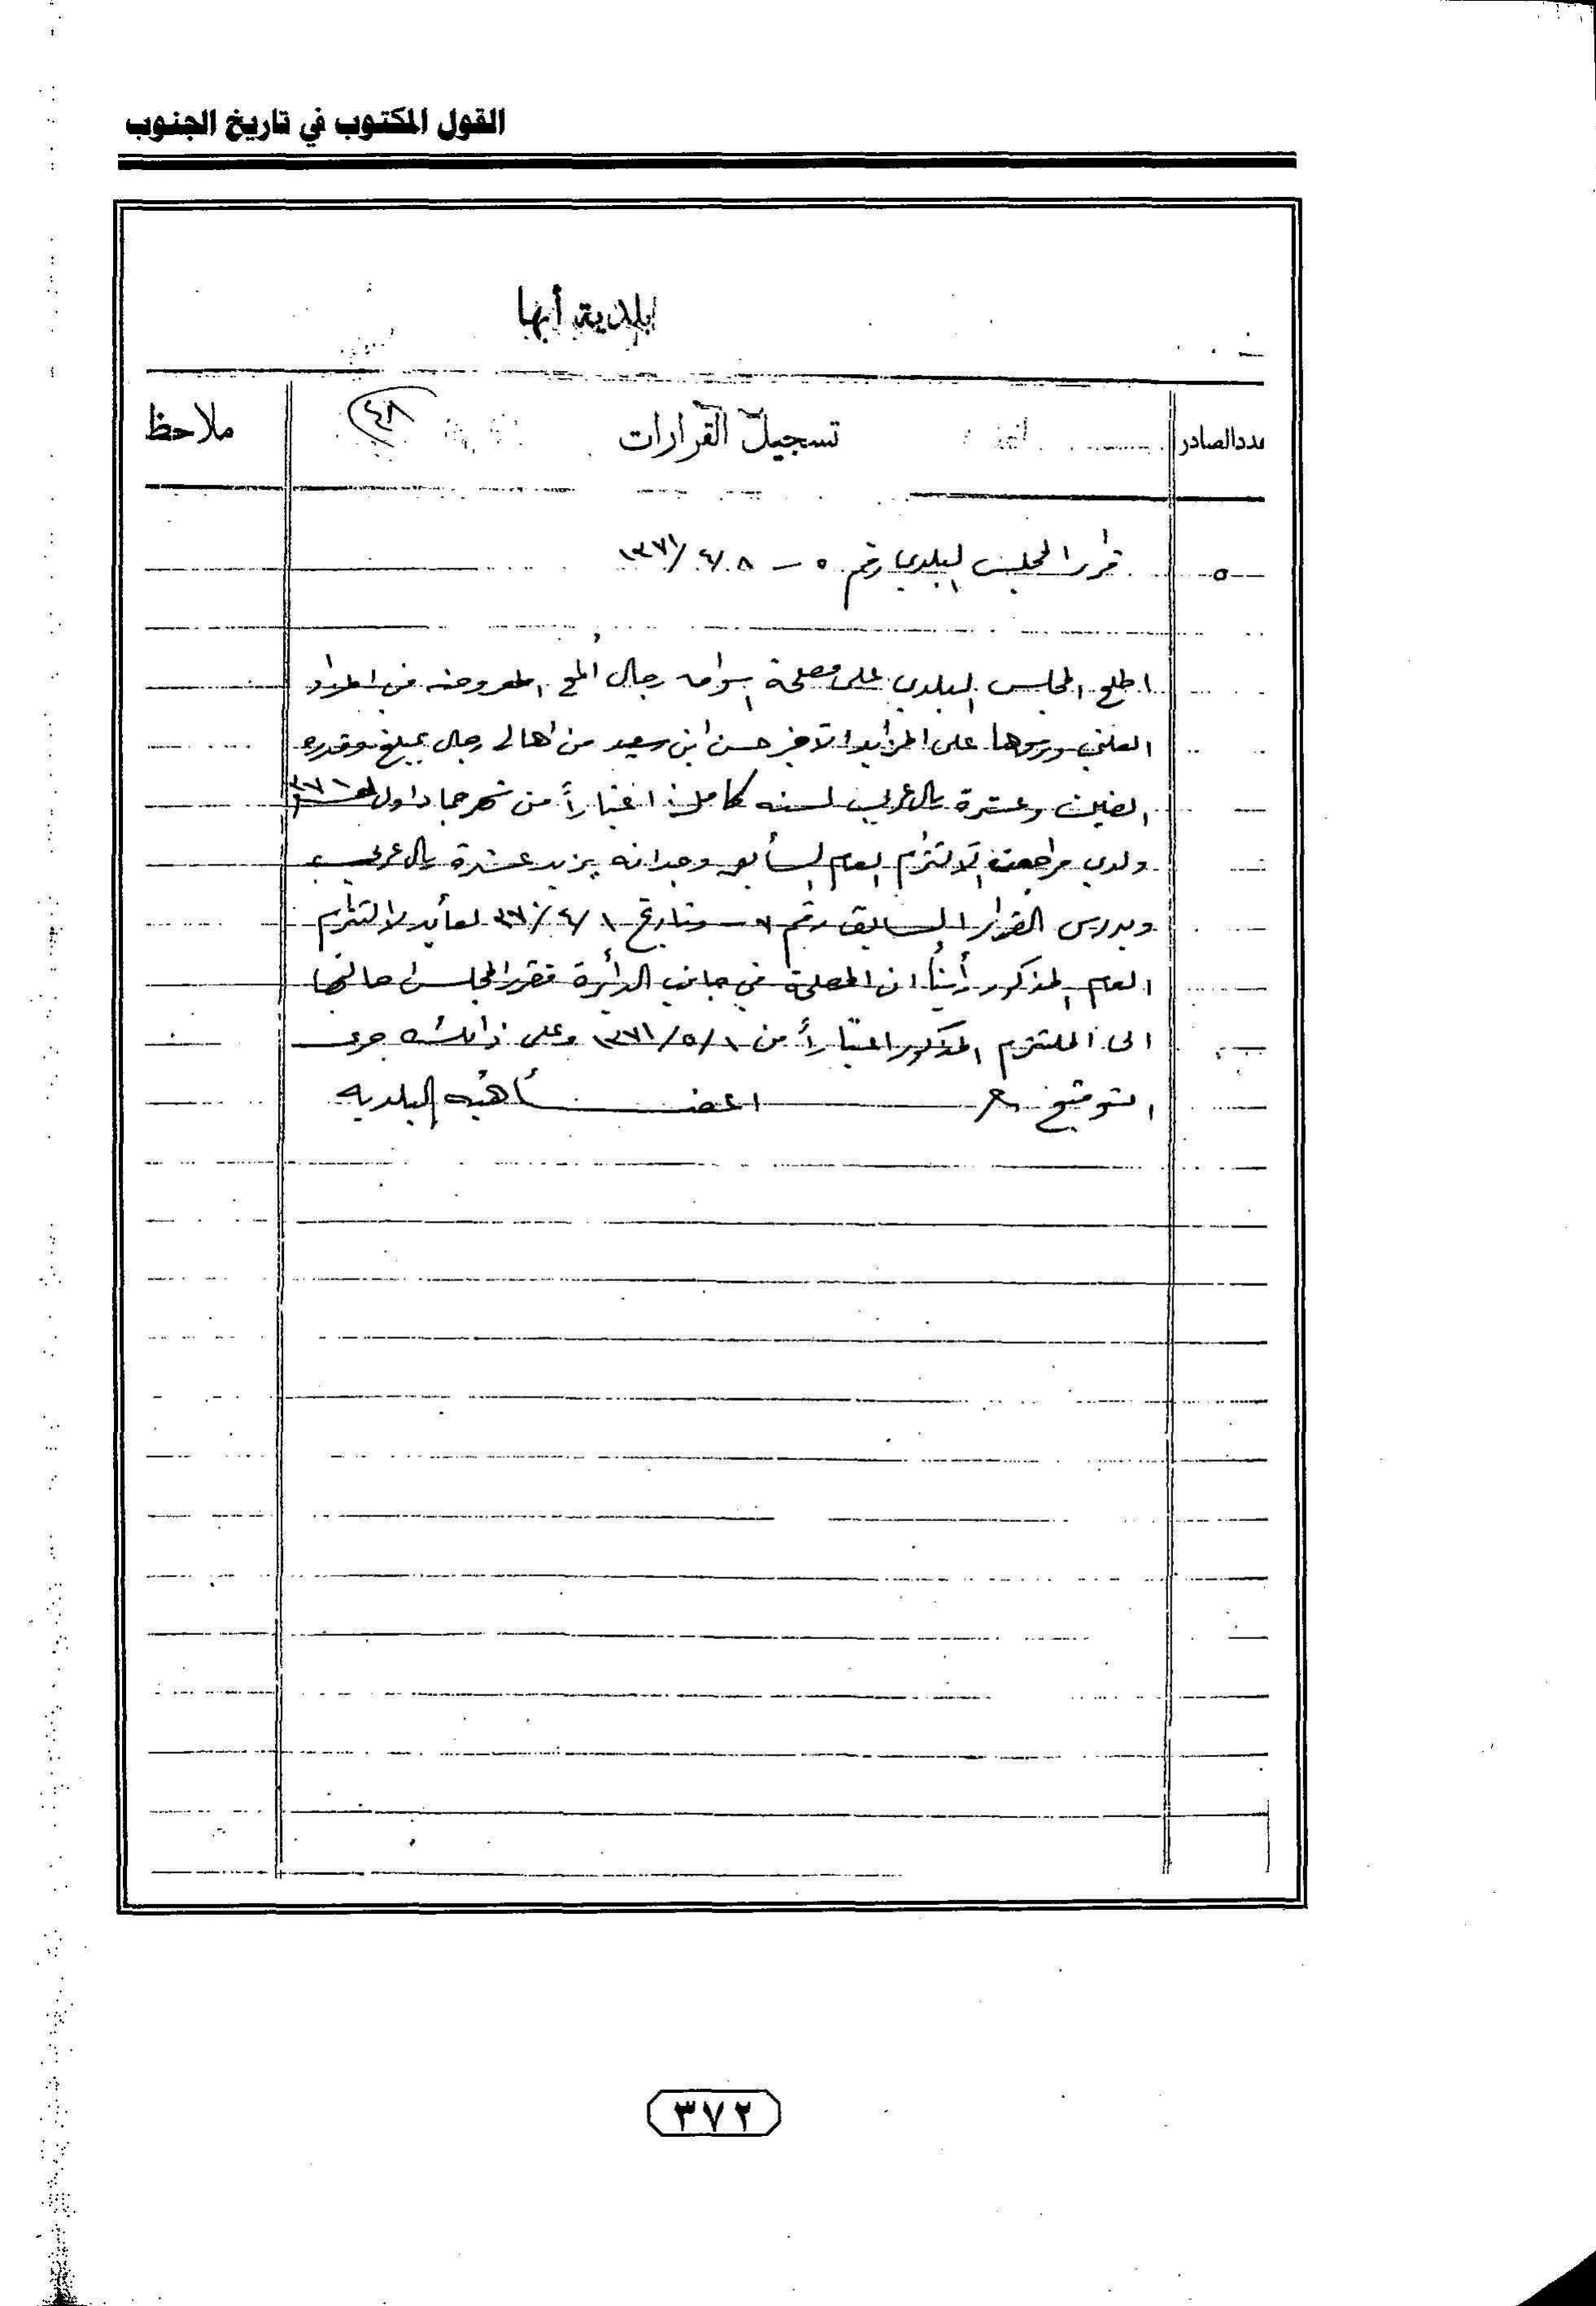 القول المكتوب في تاريخ الجنوب
بلدية أبها
عدد الصادر
تسجيل القرارات
٤٨
ملاحظ
٥
قرار المجلس البلدي رقم ٥ – ٨/٤/١٣٧١
اطلع المجلس البلدي على مصلحة اسواق رجال ألمع المعروضه في المزاد
العلني ورسوها على المزايد الآخير حسن ابن سعيد من اهالي رجال بمبلغ وقدره
الفين وعشرة ريال عربي لسنه كاملة اعتباراً من شهر جماد اول
ولدى مراجعت الالتزام العام السابق وجد انه يزيد عشرة ريال عربي
وبدرس القرار السابق رقم ٧ وتاريخ ١/٤/٣٧٠ لعائد لالتزام
العام المذكور رأينا ان المصلحة في جانب الدائرة فقرر المجلس احالتها
الى الملتزم المذكور اعتباراً من ١/٥/١٣٧١ وعلى ذالك جرى
التوقيع اعضاء هيئه البلديه
٣٧٢